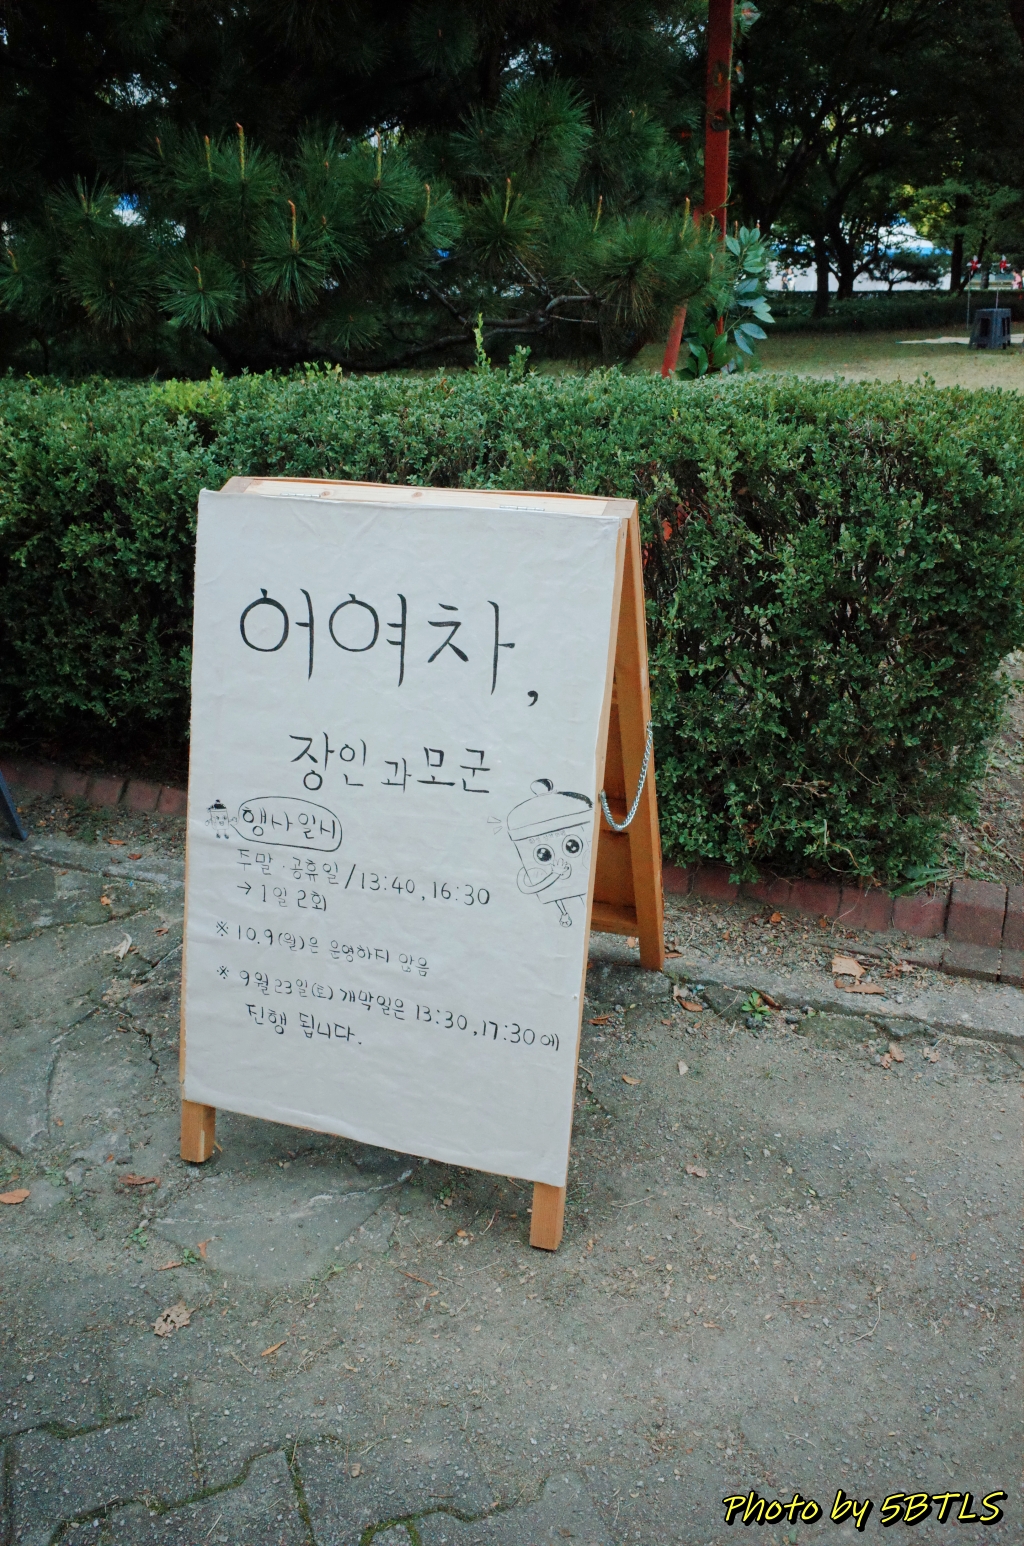 어여차,
장인과 모군
행사일시
두말·공휴일/13:40, 16:30
→1일 2회
※10.9(월)은 운영하지 않음
※ 9월 23일(토) 개막일은 13:30, 17:30에
진행 됩니다.
Photo by 5BTLS